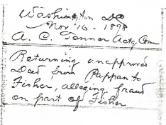 Washington DC
Nov 16 - 1898
A. C. Tonner Actg Com
Returning unapproved
Deed from Pappan to
Fisher, alleging fraud
on part of Fisher